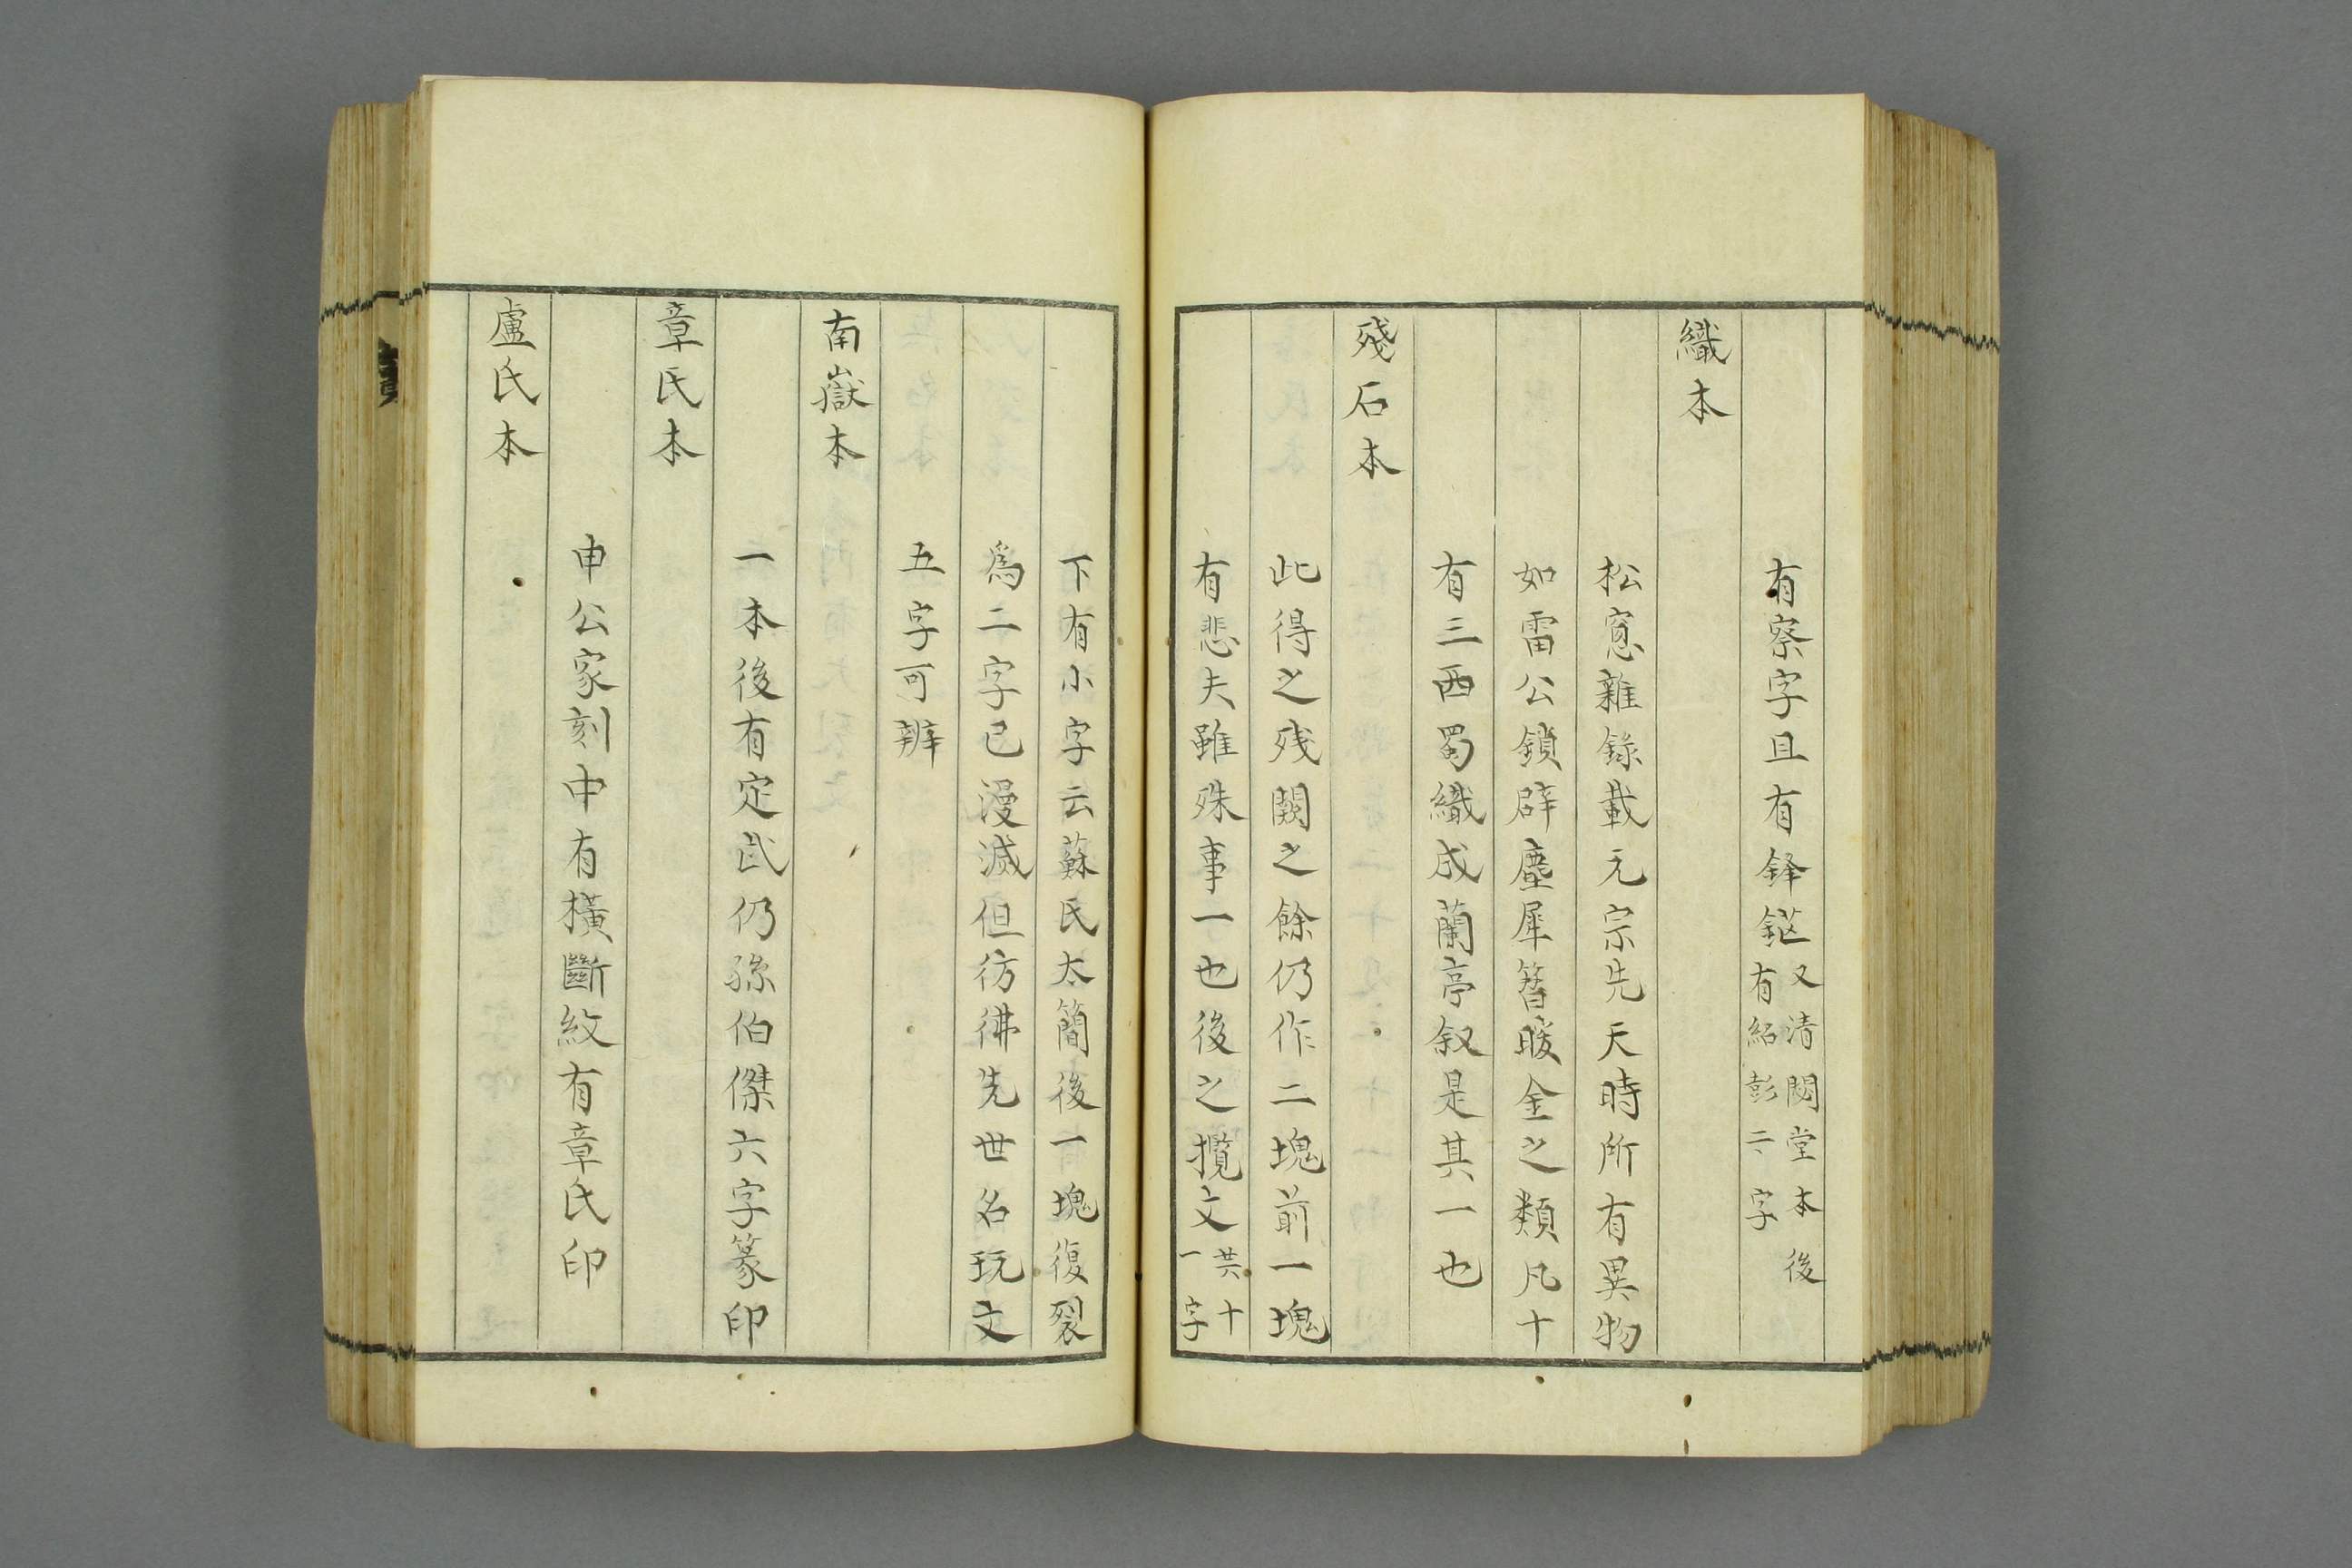 有察字且有鋒鋩又清閟堂本後有紹彭二字
織本
松窓雜錄載元宗先天時所有異物
如雷公鎖辟塵犀簪暖金之類凡十
有三西蜀織成蘭亭叙是其一也
殘石本
此得之残闕之餘仍作二塊前一塊
有悲夫雖殊事一也後之攬文共十一字
下有小字云蘇氏太簡後一塊復裂
爲二字已漫滅但彷彿先世名玩文
五字可辨
南嶽本
一本後有定武仍孫伯傑六字篆印
章氏本
申公家刻中有橫斷紋有章氏印
盧氏本